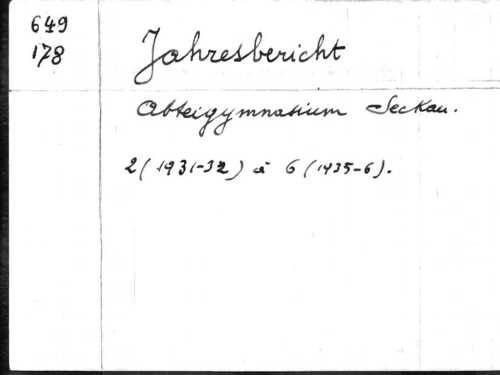 649
178
Jahresbericht
Abteigymnasium Seckau.
2 (1931-32) à 6 (1935-6).